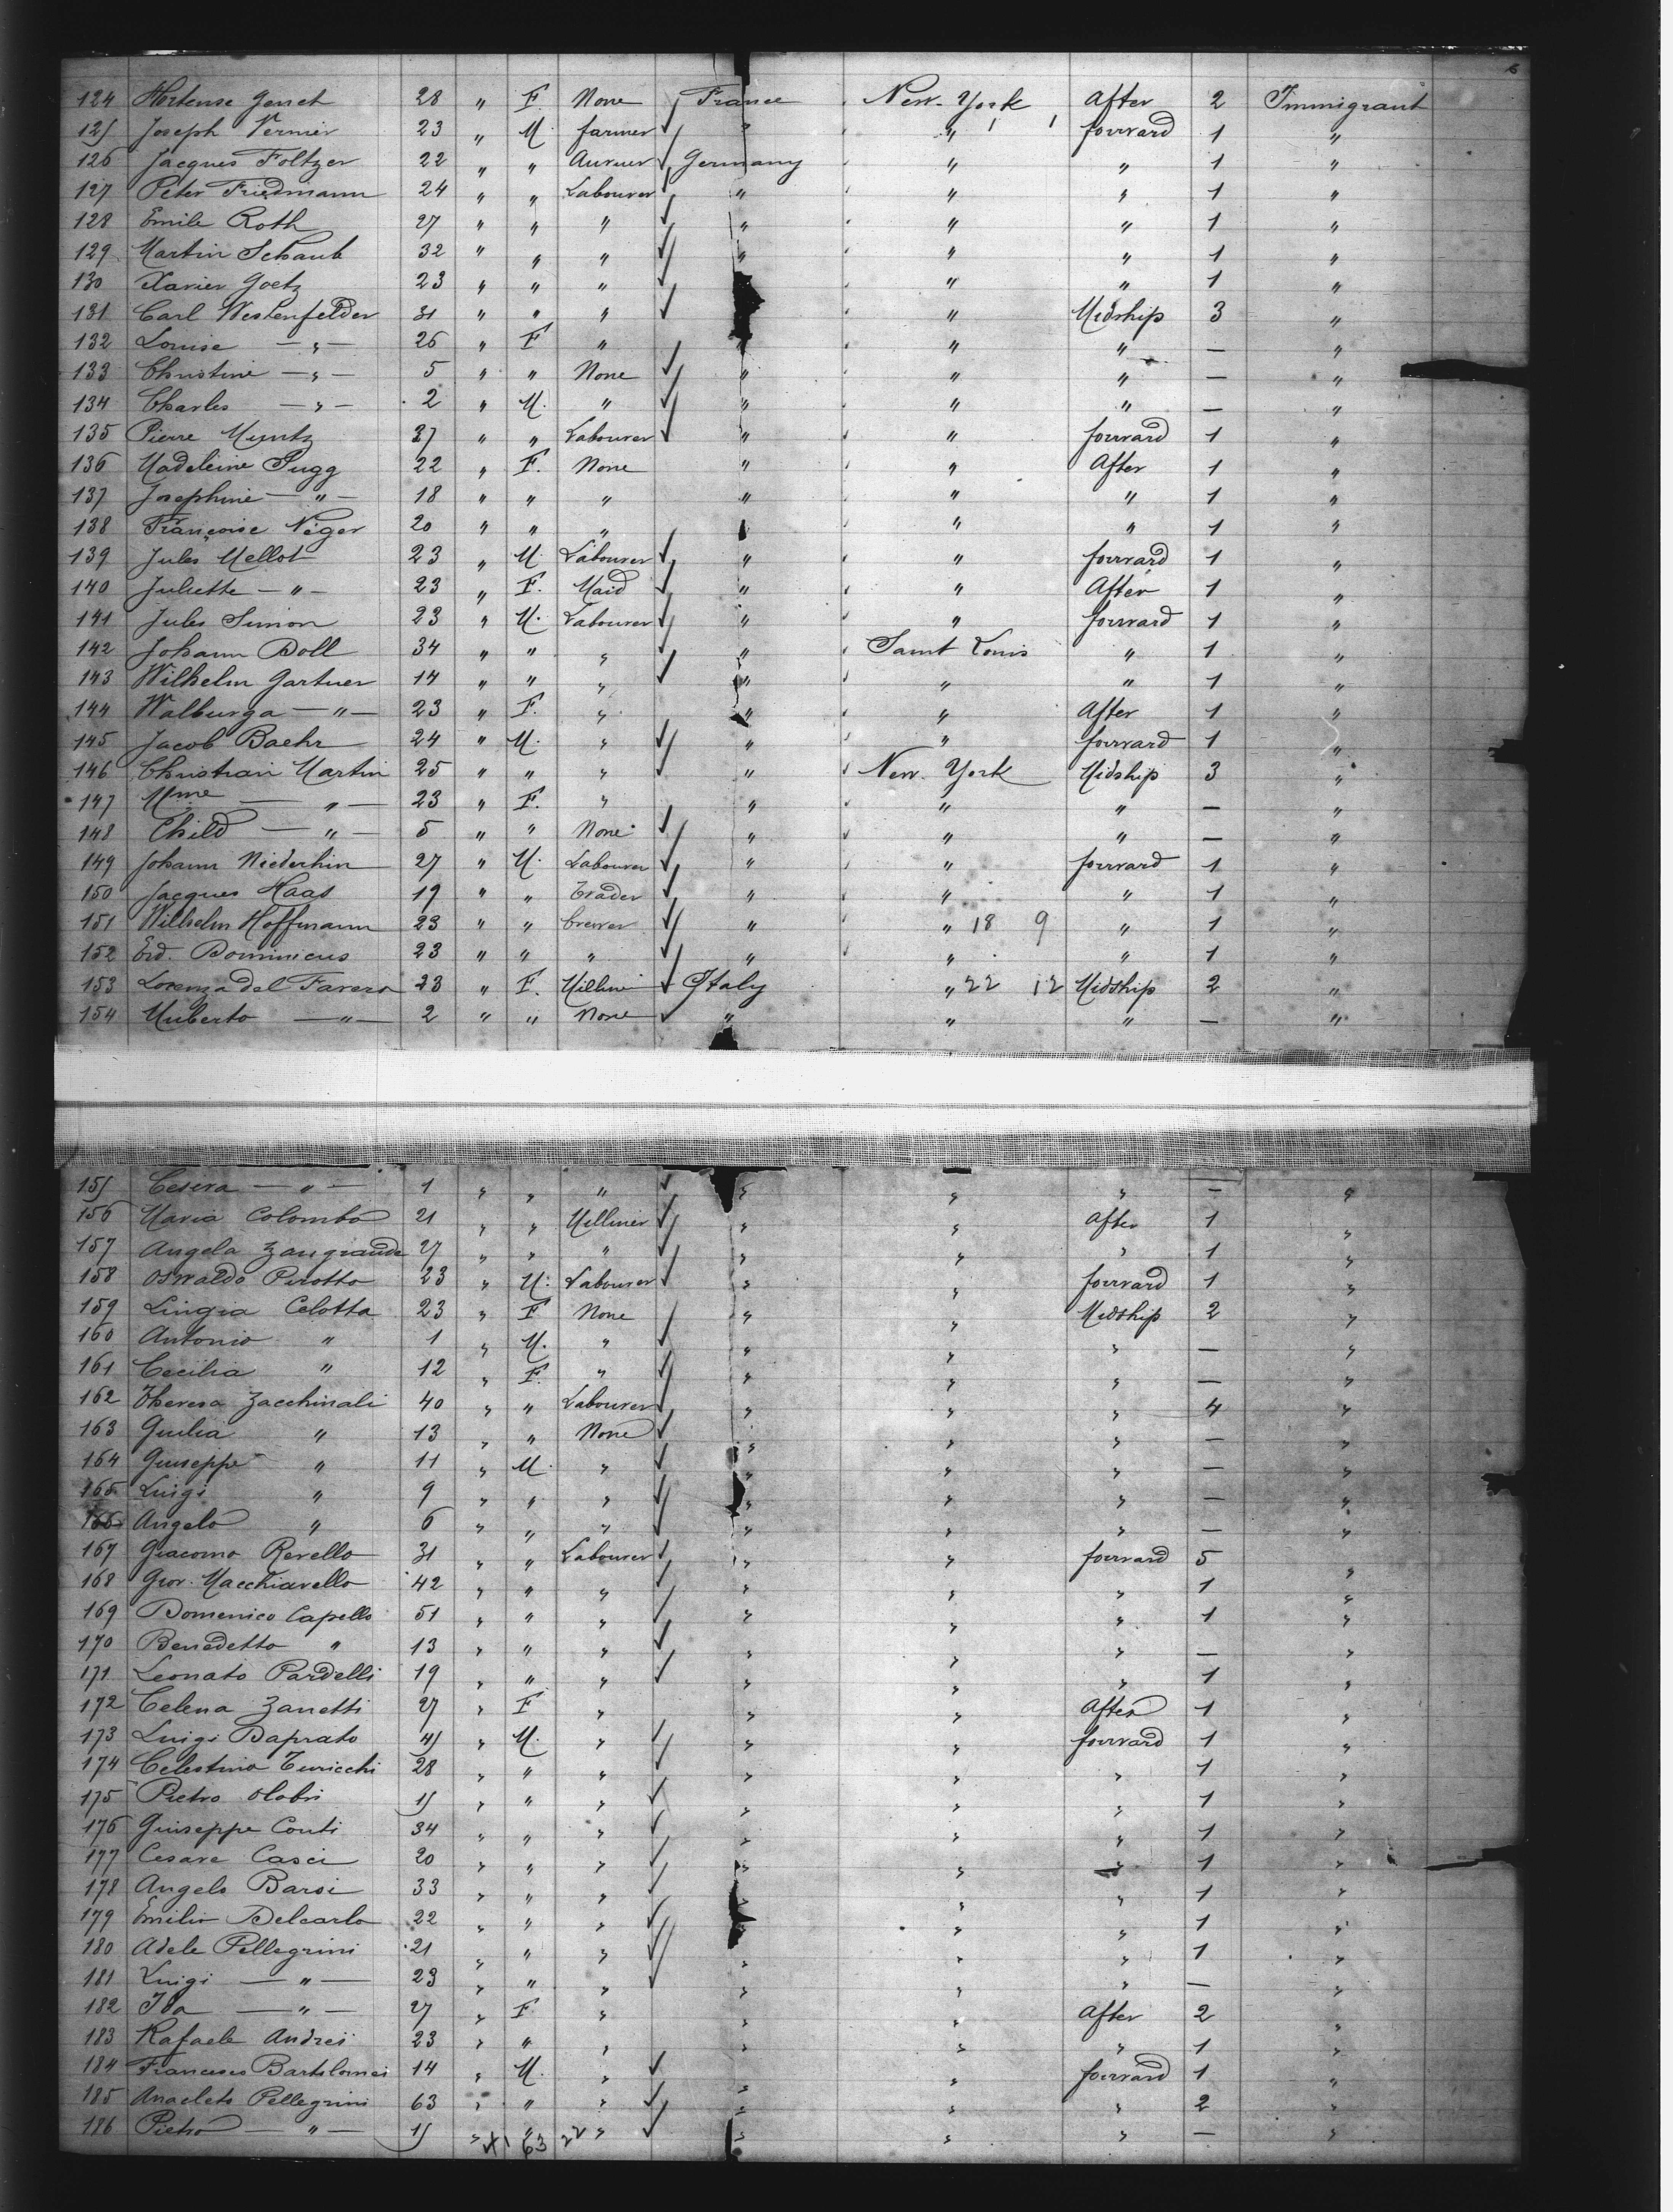 6
124 Hortense Genet 28 " F. None France New-York After 2 Immigrant
125 Joseph Vernier 23 " M. farmer " " 1 1 forward 1 "
126 Jacques Foltzer 22 " " Germany " " 1 "
127 Peter Friedmann 24 " " Labourer " " " 1 "
128 Emile Roth 27 " " " " " " 1 "
129 Martin Schaub 32 " " " " " " 1 "
130 Xavier Goetz 23 " " " " " 1 "
131 Carl Westenfelder 31 " " " " Midship 3 "
132 Louise — " — 26 " F " " " " — "
133 Christine — " — 5 " " None " " " — "
134 Charles — " — 2 " M. " " " " — "
135 Pierre Myntz 37 " " Labourer " " forward 1 "
136 Madeleine Sugg 22 " F. None " " After 1 "
137 Josephine — " — 18 " " " " " " 1 "
138 Françoise Néger 20 " " " " " 1 "
139 Jules Mellot 23 " M. Labourer " " forward 1 "
140 Juliette — " — 23 " F. Maid " " After 1 "
141 Jules Simon 23 " M. Labourer " " forward 1 "
142 Johann Boll 34 " " " " Saint Louis " 1 "
143 Wilhelm Gartner 14 " " " " " " 1 "
144 Walburga — " — 23 " F. " " " After 1 "
145 Jacob Baehr 24 " M. " " " forward 1 "
146 Christian Martin 25 " " " " New-York Midship 3 "
147 Mme — " — 23 " F. " " " " — "
148 Child — " — 5 " " None " " " — "
149 Johann Niederhin 27 " M. Labourer " " forward 1 "
150 Jacques Haas 19 " " Trader " " " 1 "
151 Wilhelm Hoffmann 23 " " brewer " " 18 9 " 1 "
152 Erd. Dominicus 23 " " " " " " 1 "
153 Lorenza del Favero 23 " F. Milliner Italy " 22 12 Midship 2 "
154 Umberto — " — 2 " " None " " " — "
155 Cesira — " — 1 " " " " " " — "
156 Maria Colombo 21 " " Milliner " " After 1 "
157 Angela Zangrande 27 " " " " " " 1 "
158 Oswaldo Pirotto 23 " M. Labourer " forward 1 "
159 Lingia Celotta 23 " F None " " Midship 2 "
160 Antonio " 1 " M. " " " " — "
161 Cecilia " 12 " F. " " " " — "
162 Theresa Zacchinali 40 " " Labourer " " " 4 "
163 Giulia " 13 " " None " " " — "
164 Guiseppe " 11 " M. " " " " — "
165 Luigi " 9 " " " " " " — "
166 Angelo " 6 " " " " " " — "
167 Giacomo Revello 31 " " Labourer " " forward 5 "
168 Giov. Macchiavello 42 " " " " " " 1 "
169 Domenico Capello 51 " " " " " " 1 "
170 Benedetto " 13 " " " " " " — "
171 Leonato Pardelli 19 " " " " " " 1 "
172 Celena Zanetti 27 " F " " " After 1 "
173 Luigi Daprato 45 " M. " " " forward 1 "
174 Celestino Turicchi 28 " " " " " " 1 "
175 Pietro Olobri 15 " " " " " " 1 "
176 Guiseppe Conti 34 " " " " " " 1 "
177 Cesare Casci 20 " " " " " " 1 "
178 Angelo Barsi 33 " " " " " " 1 "
179 Emilio Delcarlo 22 " " " " " " 1 "
180 Adele Pellegrini 21 " " " " " " 1 "
181 Luigi — " — 23 " " " " " " — "
182 Ida — " — 27 " F " " " After 2 "
183 Rafaele Andrei 23 " " " " " " 1 "
184 Francesco Bartolomei 14 " M. " " " forward 1 "
185 Anacleto Pellegrini 63 " " " " " " 2 "
186 Pietro — " — 15 " " " " " " — "
41 63 22